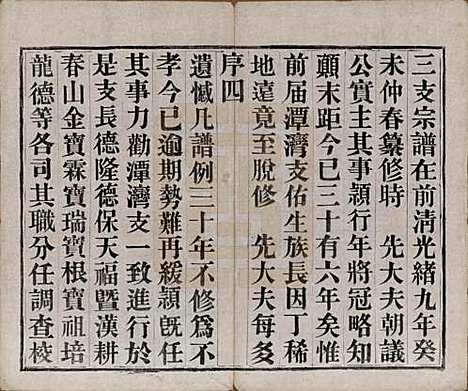 三支宗譜在前清光緒九年癸
未仲春纂修時　先大夫朝議
公實主其事頴行年將冠略知
顛末距今已三十有六年矣惟
前届潭灣支佑生族長因丁稀
地遠竟至脫修　先大夫每多
序四
遺憾凡譜例三十年不修為不
孝今已逾期勢難再緩頴旣任
其事力勸潭灣支一致進行於
是支長德隆德保天福曁漢耕
春山金寶霖寶瑞寶根寶祖培
龍德等各司其職分任調查校